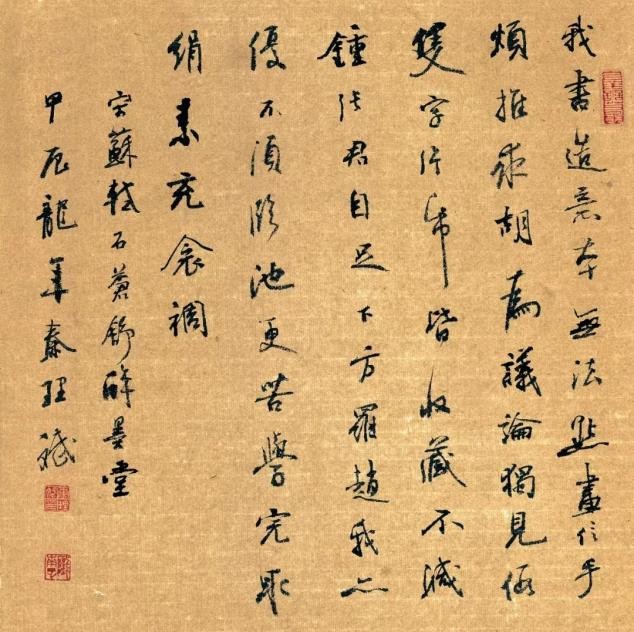 我書造意本無法點畫信手
煩推求胡為議論獨見假
隻字片帋皆收藏不減
鍾張君自足下方羅趙我亦
優不須臨池更苦學完取
絹素充衾裯
宋蘇軾石蒼舒醉墨堂
甲辰龍年秦理斌